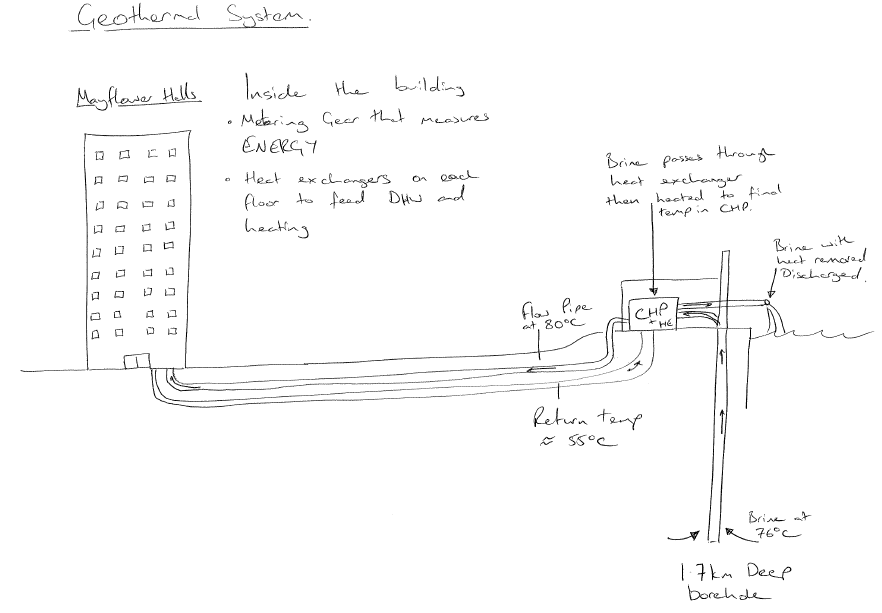 Geothermal System.
Mayflower Halls
Inside the building
• Metering Gear that measures
ENERGY
• Heat exchangers on each
floor to feed DHW and
heating
Brine passes through
heat exchanger
then heated to final
temp in CHP.
Brine with
heat removed
Discharged.
Flow Pipe
at 80°C
CHP
+ HE
Return temp
≈ 55°C
Brine at
76°C
1.7km Deep
borehole